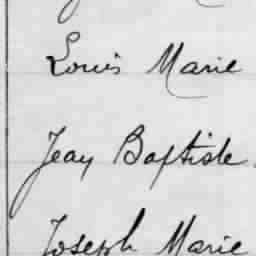 Louis Marie
Jean Baptiste
Joseph Marie